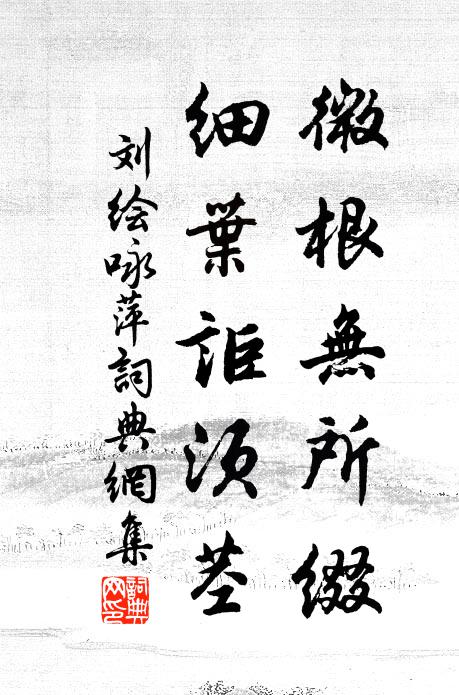 微根無所綴
細葉詎須茎
刘绘咏萍詞典網集
詞典網印